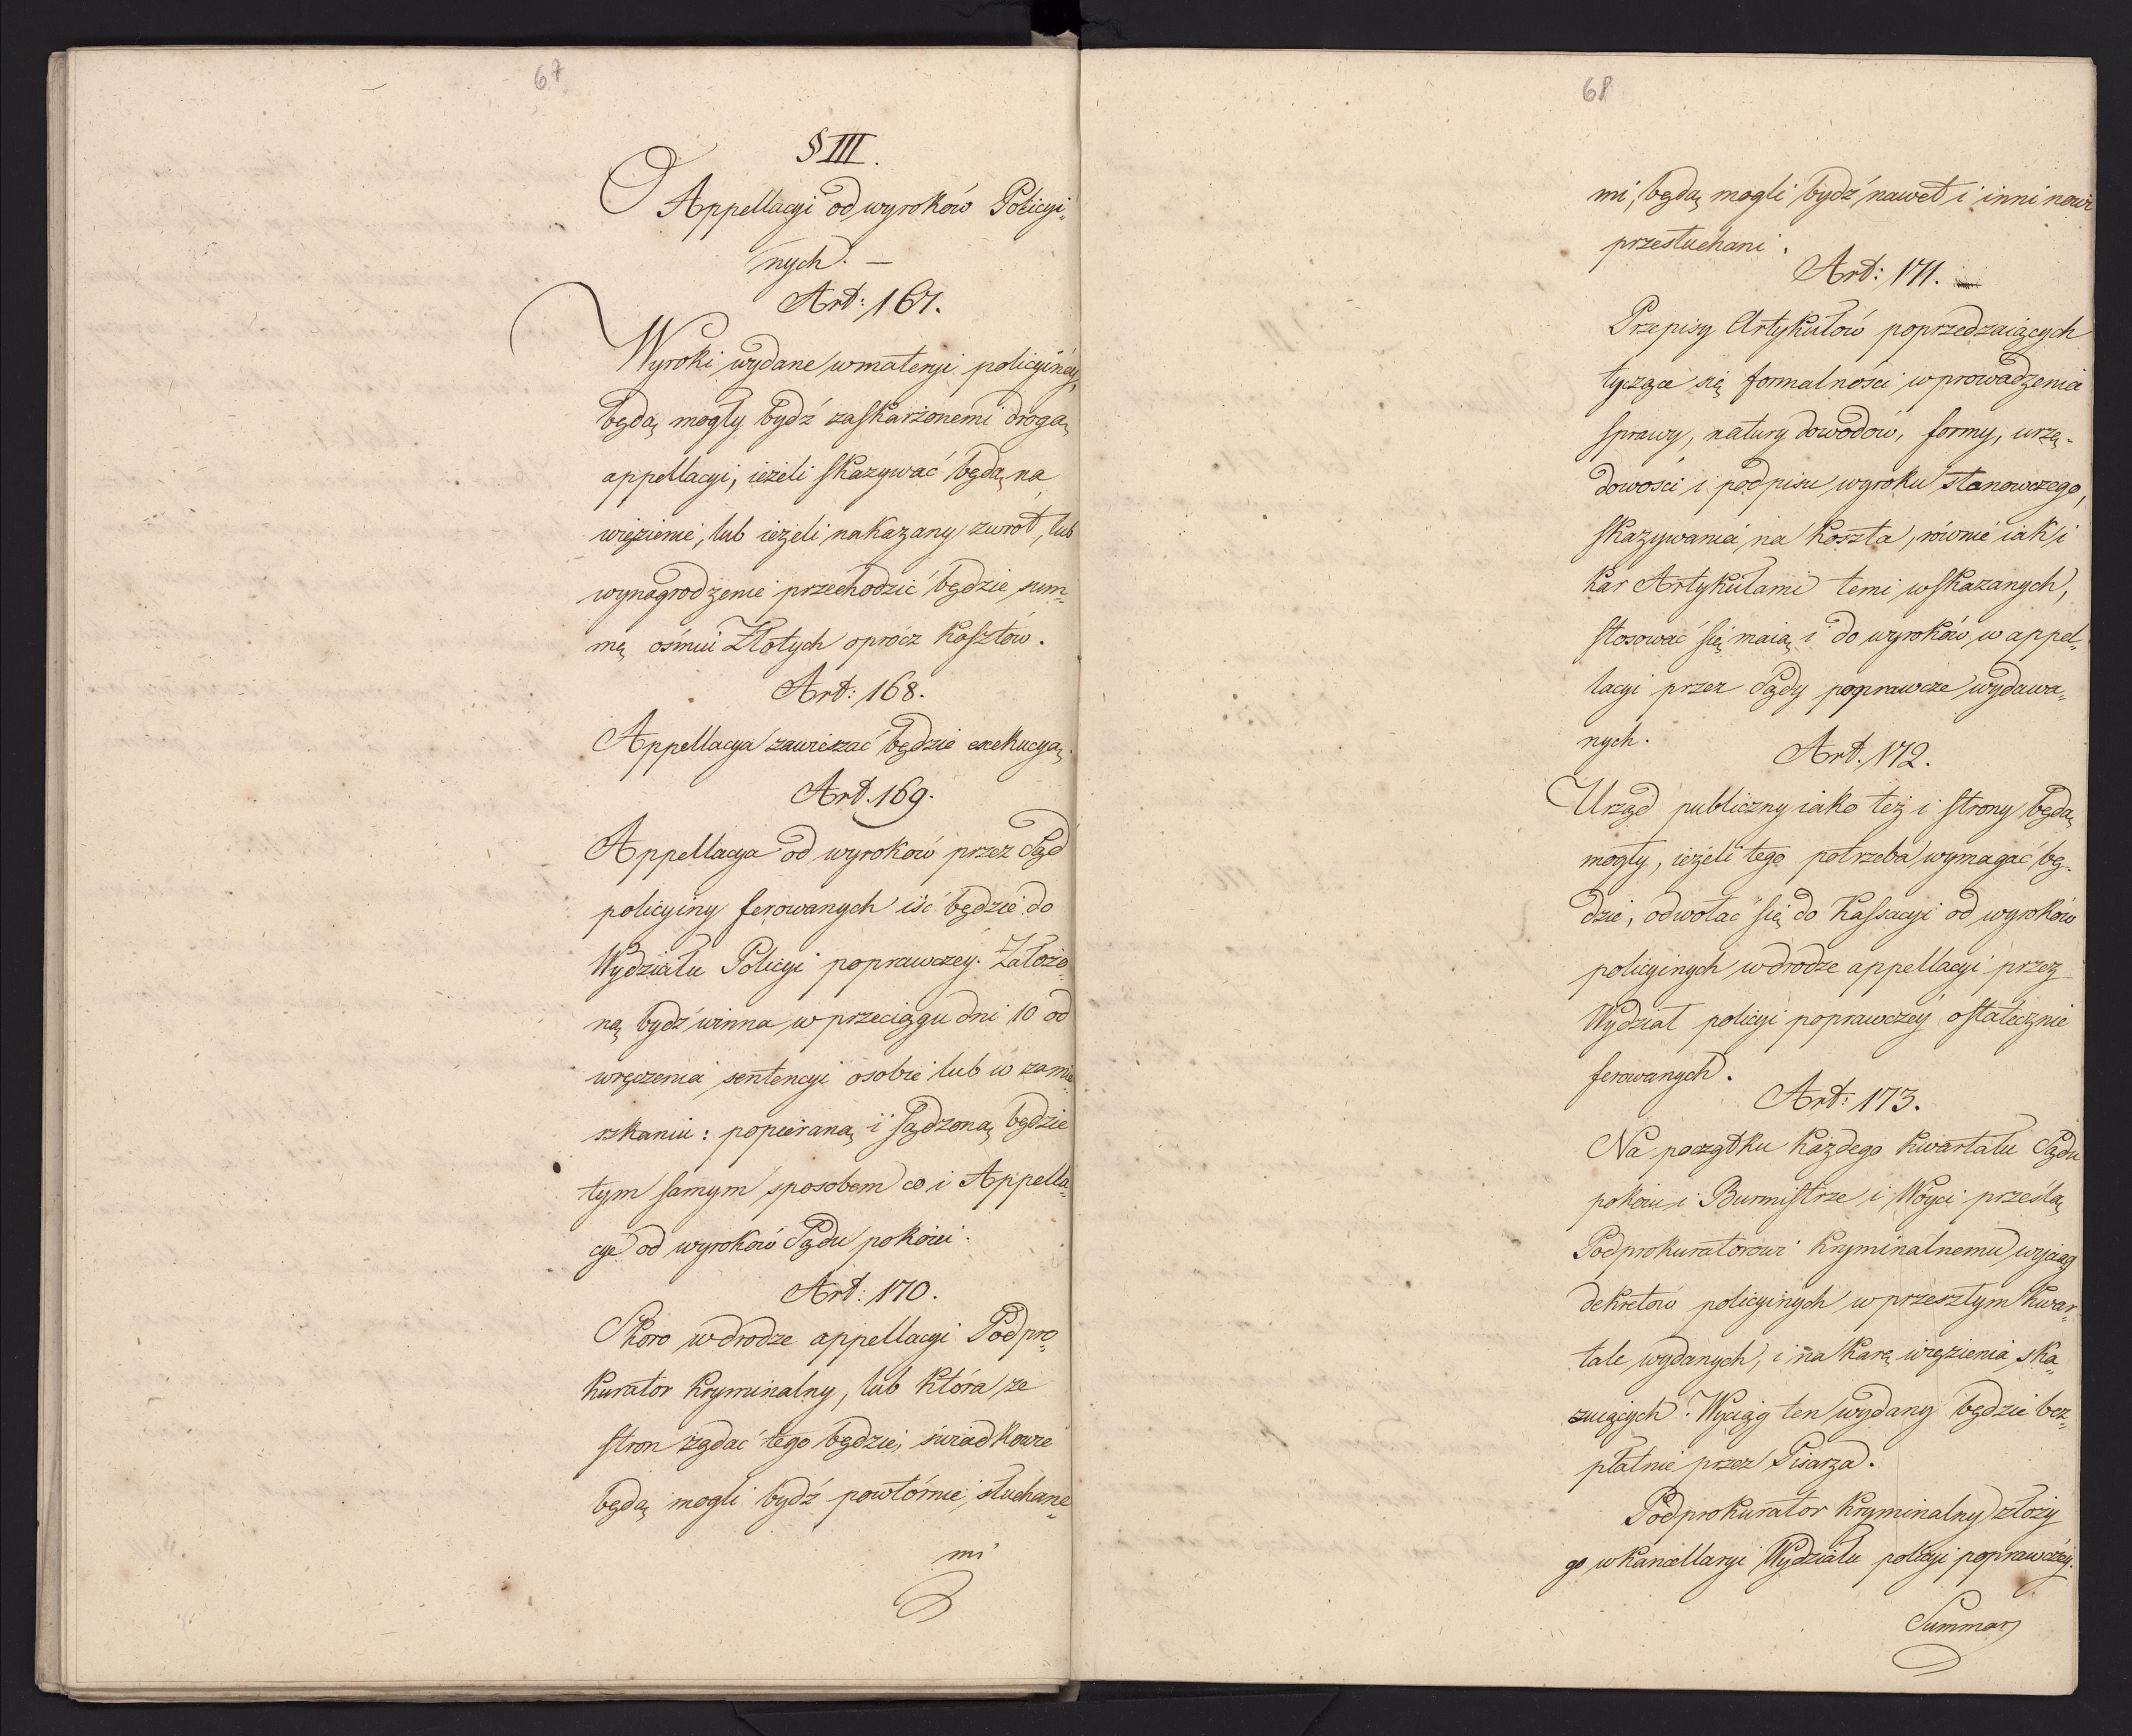 67
§ III.
O Appellacyi od wyroków Policyi„
nych. —
Art: 167.
Wyroki wydane w materyi policyinéy,
będą mogły bydź zaskarżonemi drogą
appellacyi, ieżeli skazywać będą na
więzienie, lub ieżeli nakazany zwrot, lub
wynagrodzenie przechodzić będzie sum„
mę ośmiu Złotych oprócz kosztów.
Art: 168.
Appellacya zawieszać będzie exekucyą.
Art. 169.
Appellacya od wyroków przez Sąd
policyiny ferowanych iść będzie do
Wydziału Policyi poprawczey. Założo„
ną bydź winna w przeciągu dni 10 od
wręczenia sentencyi osobie lub w zamie„
szkaniu: popieraną i sądzoną będzie
tym samym sposobem co i Appella„
cye od wyroków Sądu pokoiu.
Art: 170.
Skoro w drodze appellacyi Podpro„
kurator kryminalny, lub która ze
stron żądać tego będzie, świadkowie
będą mogli bydź powtórnie słuchane„
mi
68
mi, będą mogli bydź nawet i inni nowi
przesłuchani.
Art: 171.
Przepisy Artykułów poprzedzaiących
tyczące się formalności wprowadzenia
sprawy, natury dowodów, formy, urzę„
dowości i podpisu wyroku stanowczego,
skazywania na koszta, równie iak i
kar Artykułami temi wskazanych,
stosować się maią i do wyroków w appel„
lacyi przez Sądy poprawcze wydawa„
nych.
Art. 172.
Urząd publiczny iako też i strony będą
mogły, ieżeli tego potrzeba wymagać bę„
dzie, odwołać się do Kassacyi od wyroków
policyinych w drodze appellacyi przez
Wydział policyi poprawczéy ostatecznie
ferowanych.
Art: 173.
Na początku każdego kwartału Sądu
pokoiu i Burmistrze i Wóyci prześlą
Podprokuratorowi kryminalnemu wyciąg
dekretów policyinych w przeszłym kwar„
tale wydanych, i na karę więzienia ska„
zuiących. Wyciąg ten wydany będzie bez„
płatnie przez Pisarza.
Podprokurator kryminalny złoży
go w kancellaryi Wydziału policyi poprawczéy.
Summar